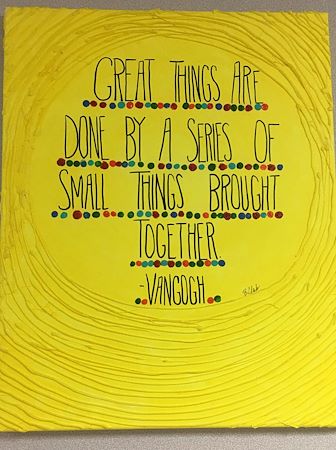 GREAT THINGS ARE
DONE BY A SERIES OF
SMALL THINGS BROUGHT
TOGETHER
-VANGOGH